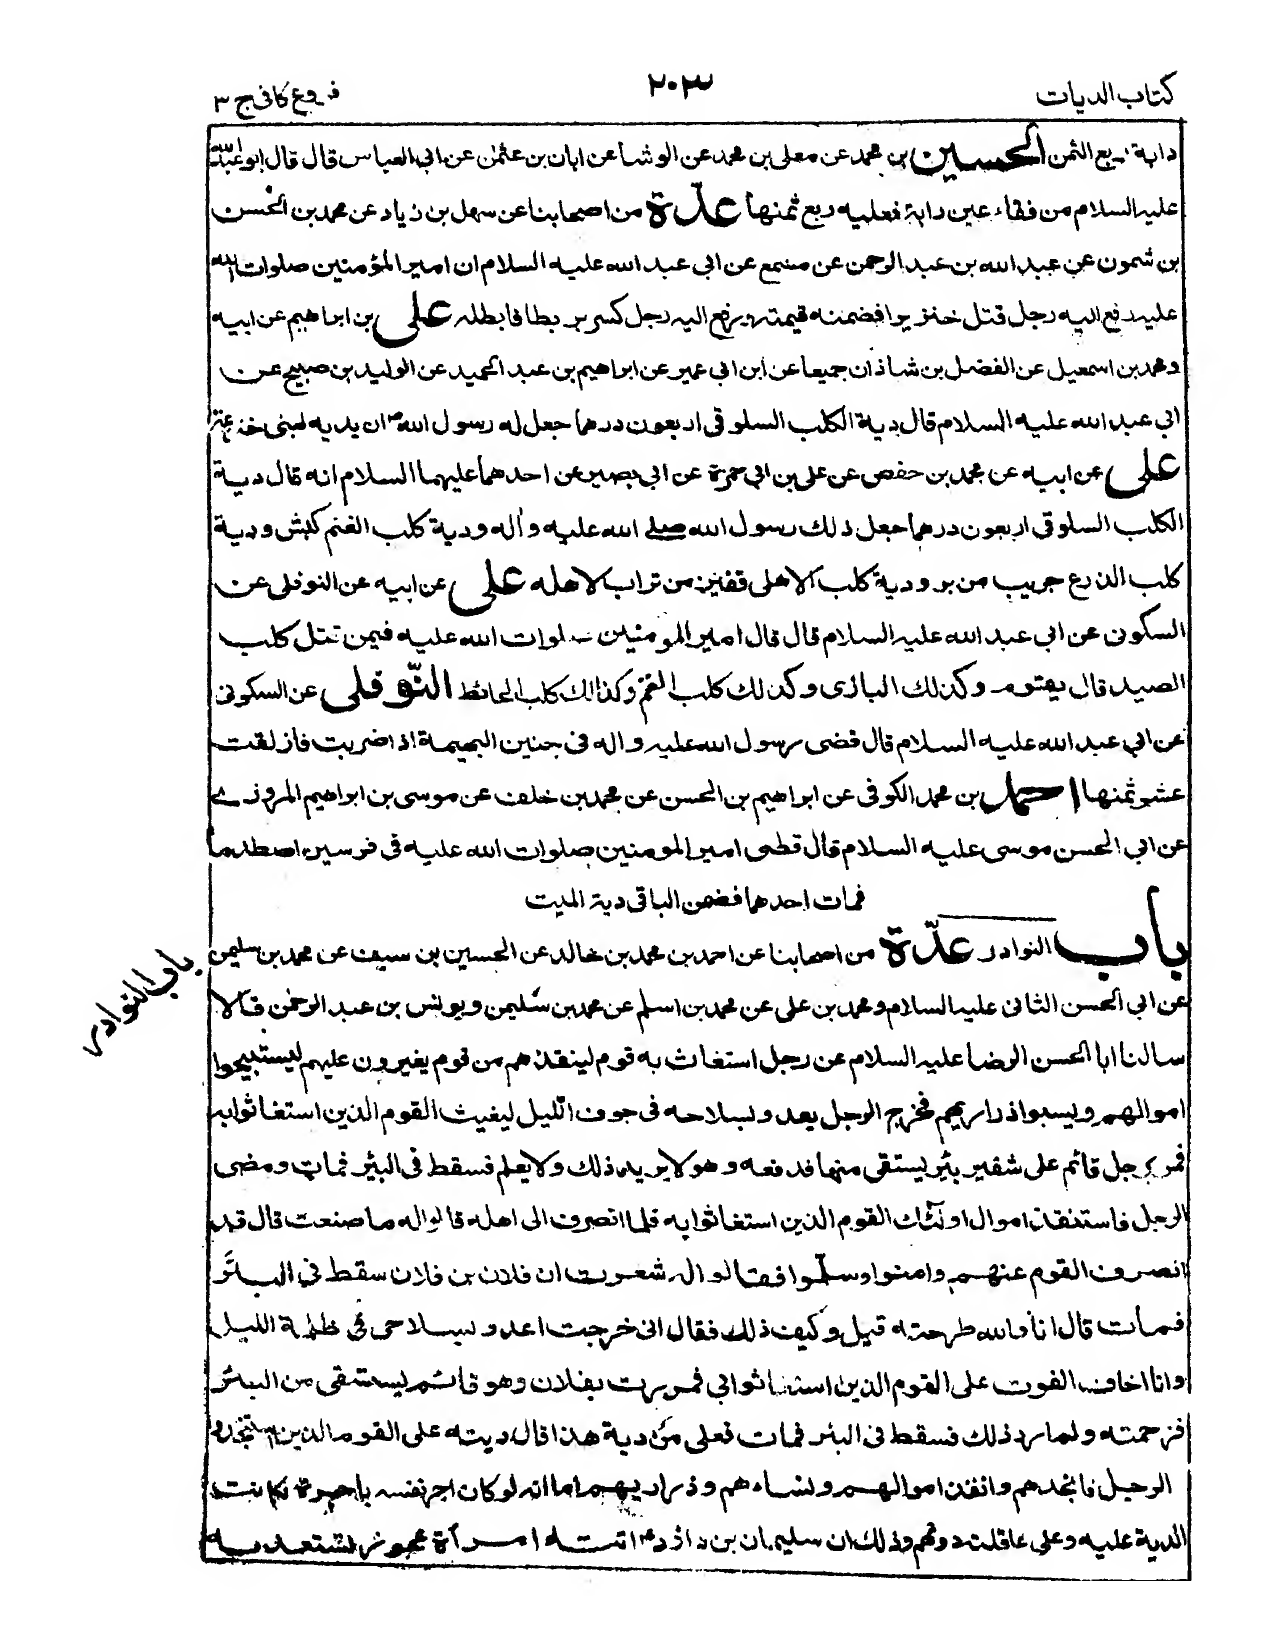 كتاب الديات
٢٠٣
فروع كافى ج ٣
دابة ربع الثمن الحسين بن محمد عن معلى بن محمد عن الوشا عن ابان بن عثمن عن ابى العباس قال قال ابو عبد الله
عليه السلام من فقاء عين دابة فعليه ربع ثمنها عدّة من اصحابنا عن سهل بن زياد عن محمد بن الحسن
بن شمون عن عبد الله بن عبد الرحمن عن مسمع عن ابى عبد الله عليه السلام ان امير المؤمنين صلوات الله
عليه رفع اليه رجل قتل خنزيرا فضمنه قيمته ورفع اليه رجل كسر بربطا فابطله على بن ابراهيم عن ابيه
ومحمد بن اسمعيل عن الفضل بن شاذان جميعا عن ابن ابى عمير عن ابراهيم بن عبد الحميد عن الوليد بن صبيح عن
ابى عبد الله عليه السلام قال دية الكلب السلوقى اربعون درهما جعل له رسول الله ص ان يديه لبنى خزيمة
على عن ابيه عن محمد بن حفص عن على بن ابى حمزة عن ابى بصير عن احدهما عليهما السلام انه قال دية
الكلب السلوقى اربعون درهما جعل ذلك رسول الله صلى الله عليه واله ودية كلب الغنم كبش ودية
كلب الذرع جريب من بر ودية كلب الاهلى قفيز من تراب لاهله على عن ابيه عن النوفلى عن
السكونى عن ابى عبد الله عليه السلام قال قال امير المومنين صلوات الله عليه فيمن قتل كلب
الصيد قال يقومه وكذلك البازى وكذلك كلب الغنم وكذلك كلب الحائط النّوفلى عن السكونى
عن ابى عبد الله عليه السلام قال قضى رسول الله عليه واله فى جنين البهيمة اذا ضربت فازلقت
عشر ثمنها احمد بن محمد الكوفى عن ابراهيم بن الحسن عن محمد بن خلف عن موسى بن ابراهيم المروزى
عن ابى الحسن موسى عليه السلام قال قضى امير المومنين صلوات الله عليه فى فرسين اصطدما
فمات احدهما فضمن الباقى دية الميت
باب النوادر عدّة من اصحابنا عن احمد بن محمد بن خالد عن الحسين بن سيف عن محمد بن سليمن
باب النوادر
عن ابى الحسن الثانى عليه السلام ومحمد بن على عن محمد بن اسلم عن محمد بن سليمن ويونس بن عبد الرحمن قالا
سالنا ابا الحسن الرضا عليه السلام عن رجل استغاث به قوم لينقذهم من قوم يغيرون عليهم ليستبيحوا
اموالهم ويسبوا ذراريهم فخرج الرجل يعدو بسلاحه فى جوف الليل ليغيث القوم الذين استغاثوا به
فمر برجل قائم على شفير بئر يستقى منها فدفعه وهو لا يريد ذلك ولا يعلم فسقط فى البئر فمات ومضى
الرجل فاستنقذ اموال اولئك القوم الذين استغاثوا به فلما انصرف الى اهله قالوا له ما صنعت قال قد
انصرف القوم عنهم وامنوا وسلموا فقالوا له شعرت ان فلان بن فلان سقط فى البئر
فمات قال انا والله طرحته قيل وكيف ذلك فقال انى خرجت اعدو بسلاحى فى ظلمة الليل
وانا اخاف الفوت على القوم الذين استغاثوا بى فمررت بفلان وهو قائم يستقى من البئر
فزحمته ولم ارد ذلك فسقط فى البئر فمات فعلى من دية هذا قال ديته على القوم الذين استنجدوا
الرجل فانجدهم وانقذ اموالهم ونساءهم وذراريهم اما انه لو كان اجر نفسه باجرة لكانت
الدية عليه وعلى عاقلته دونهم وذلك ان سليمان بن داؤد ع اتته امرأة عجوز تستعديه